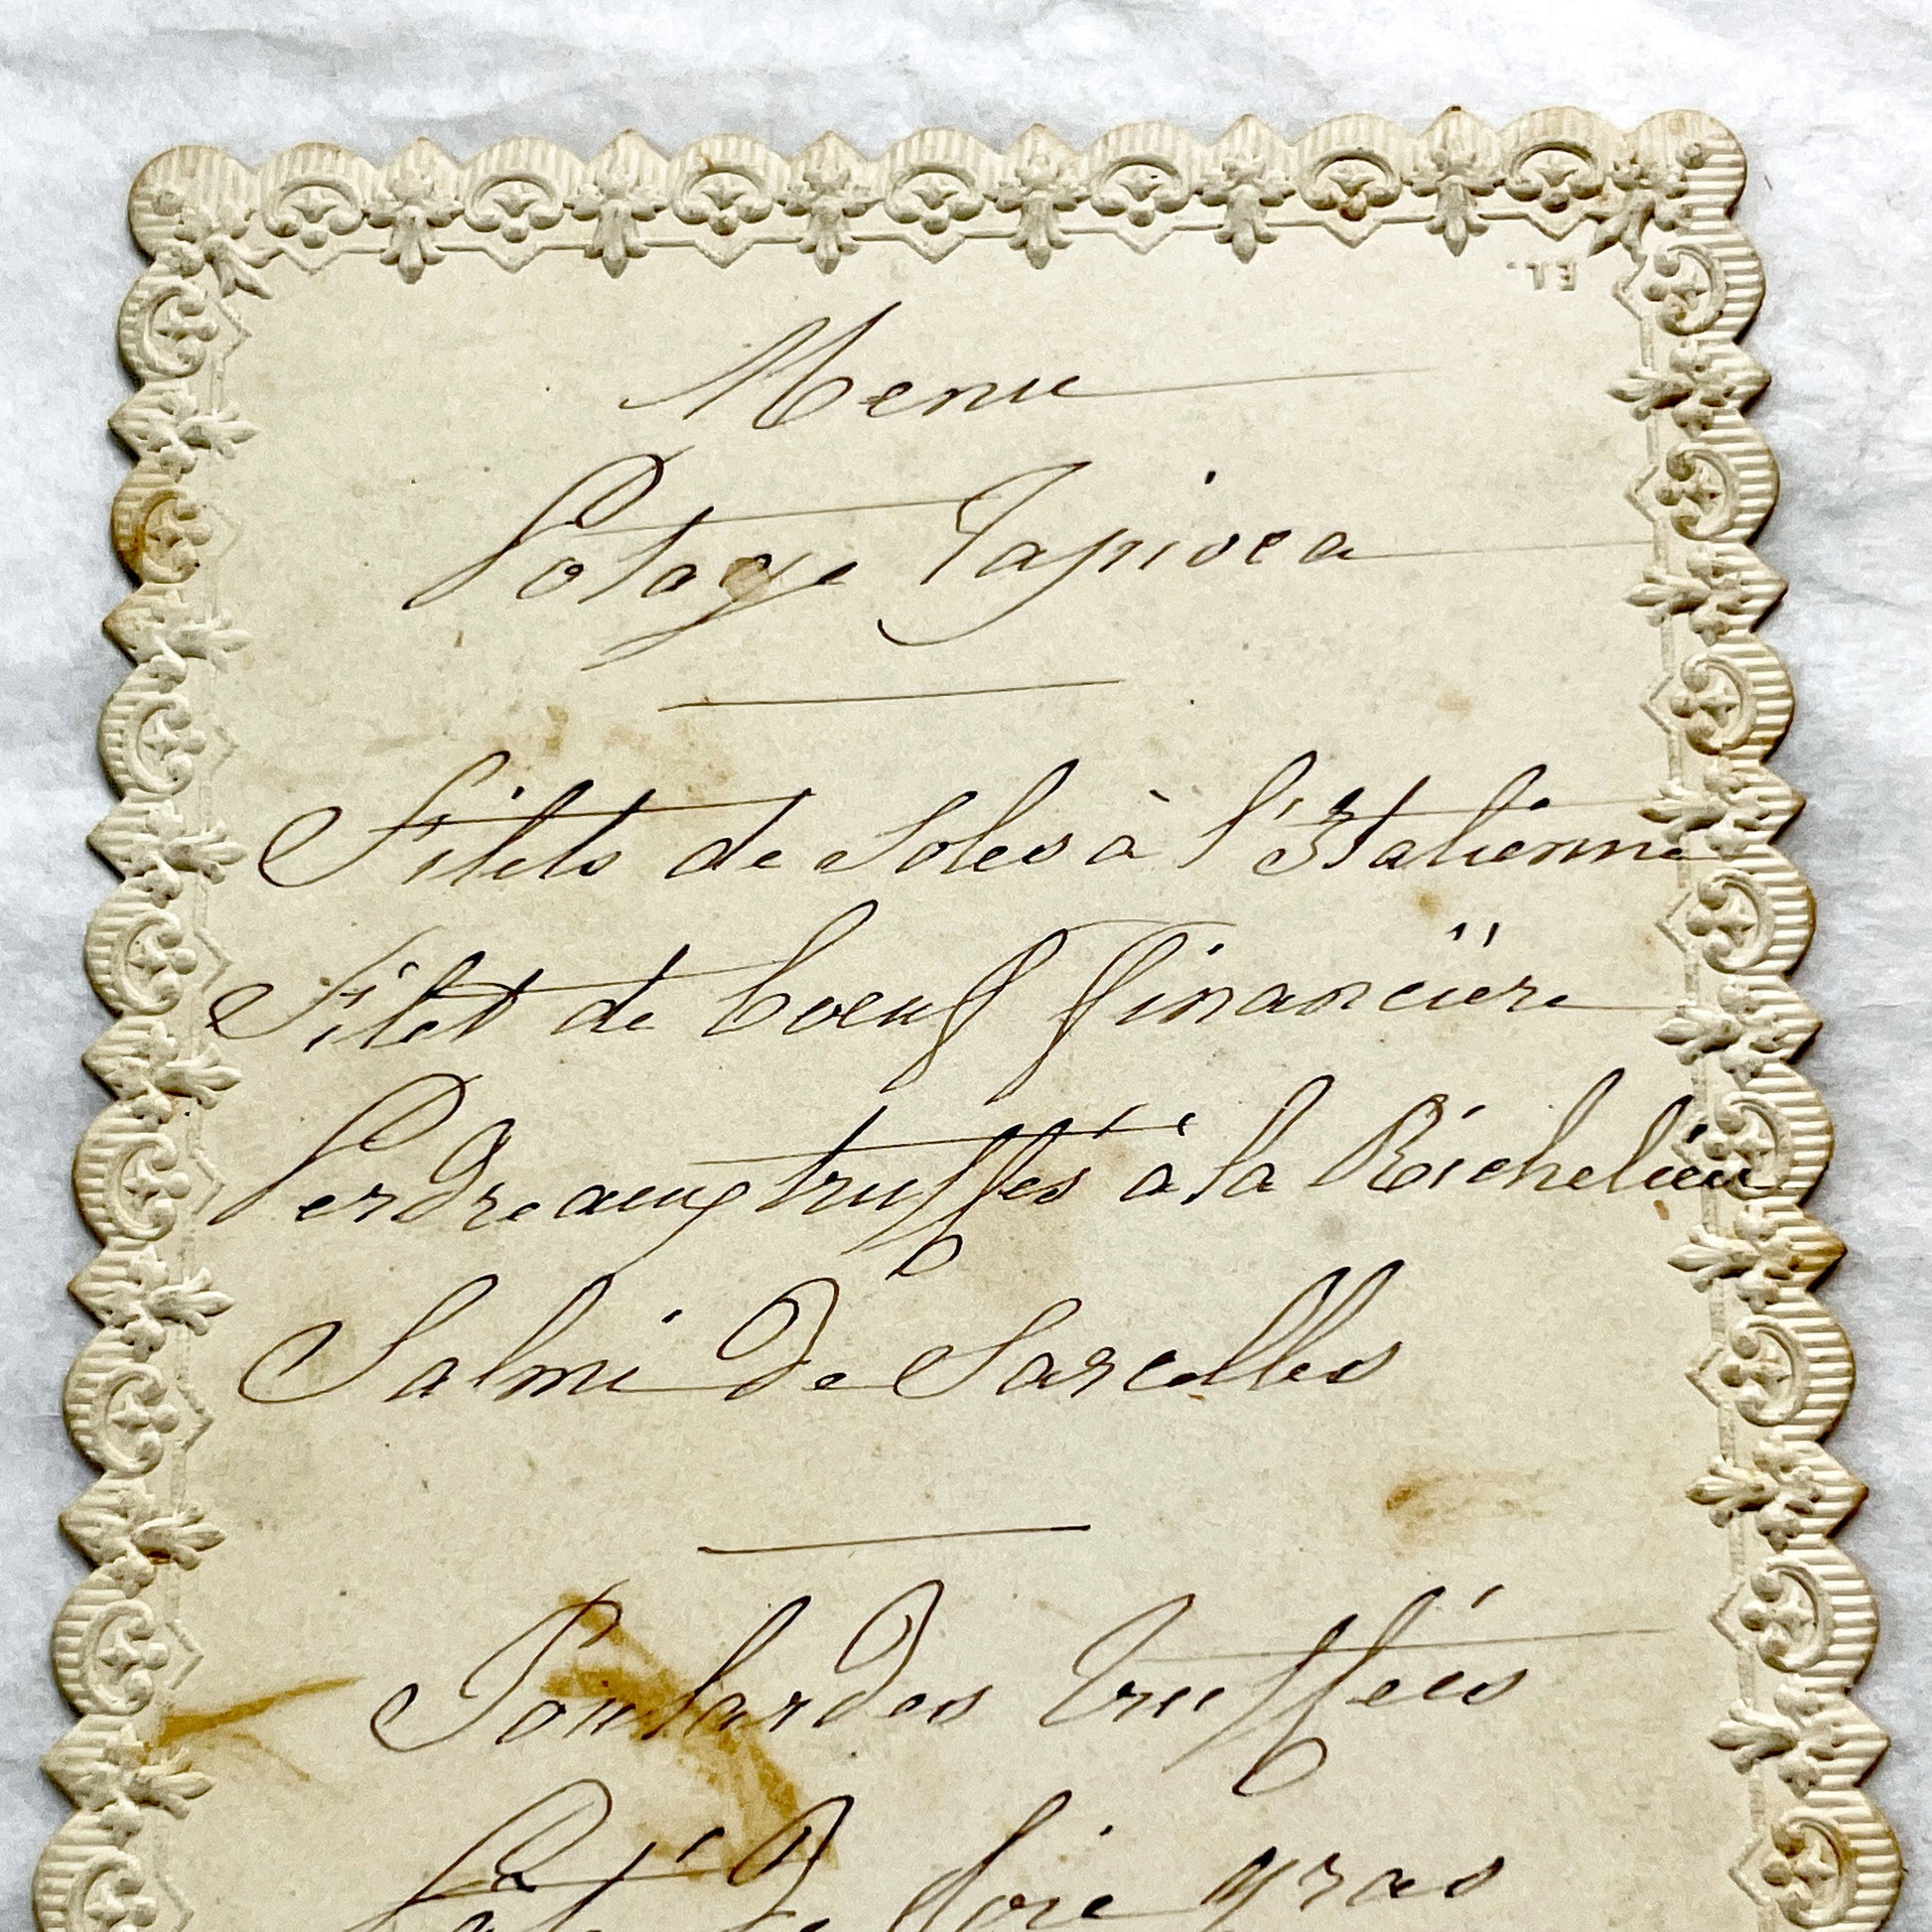 EL.
Menu
Potage Tapioca
Filets de Soles à l'Italienne
Filet de boeuf financière
Perdreaux truffés à la Richelieu
Salmi de Sarcelles
Poulardes truffées
Pâté de foie gras